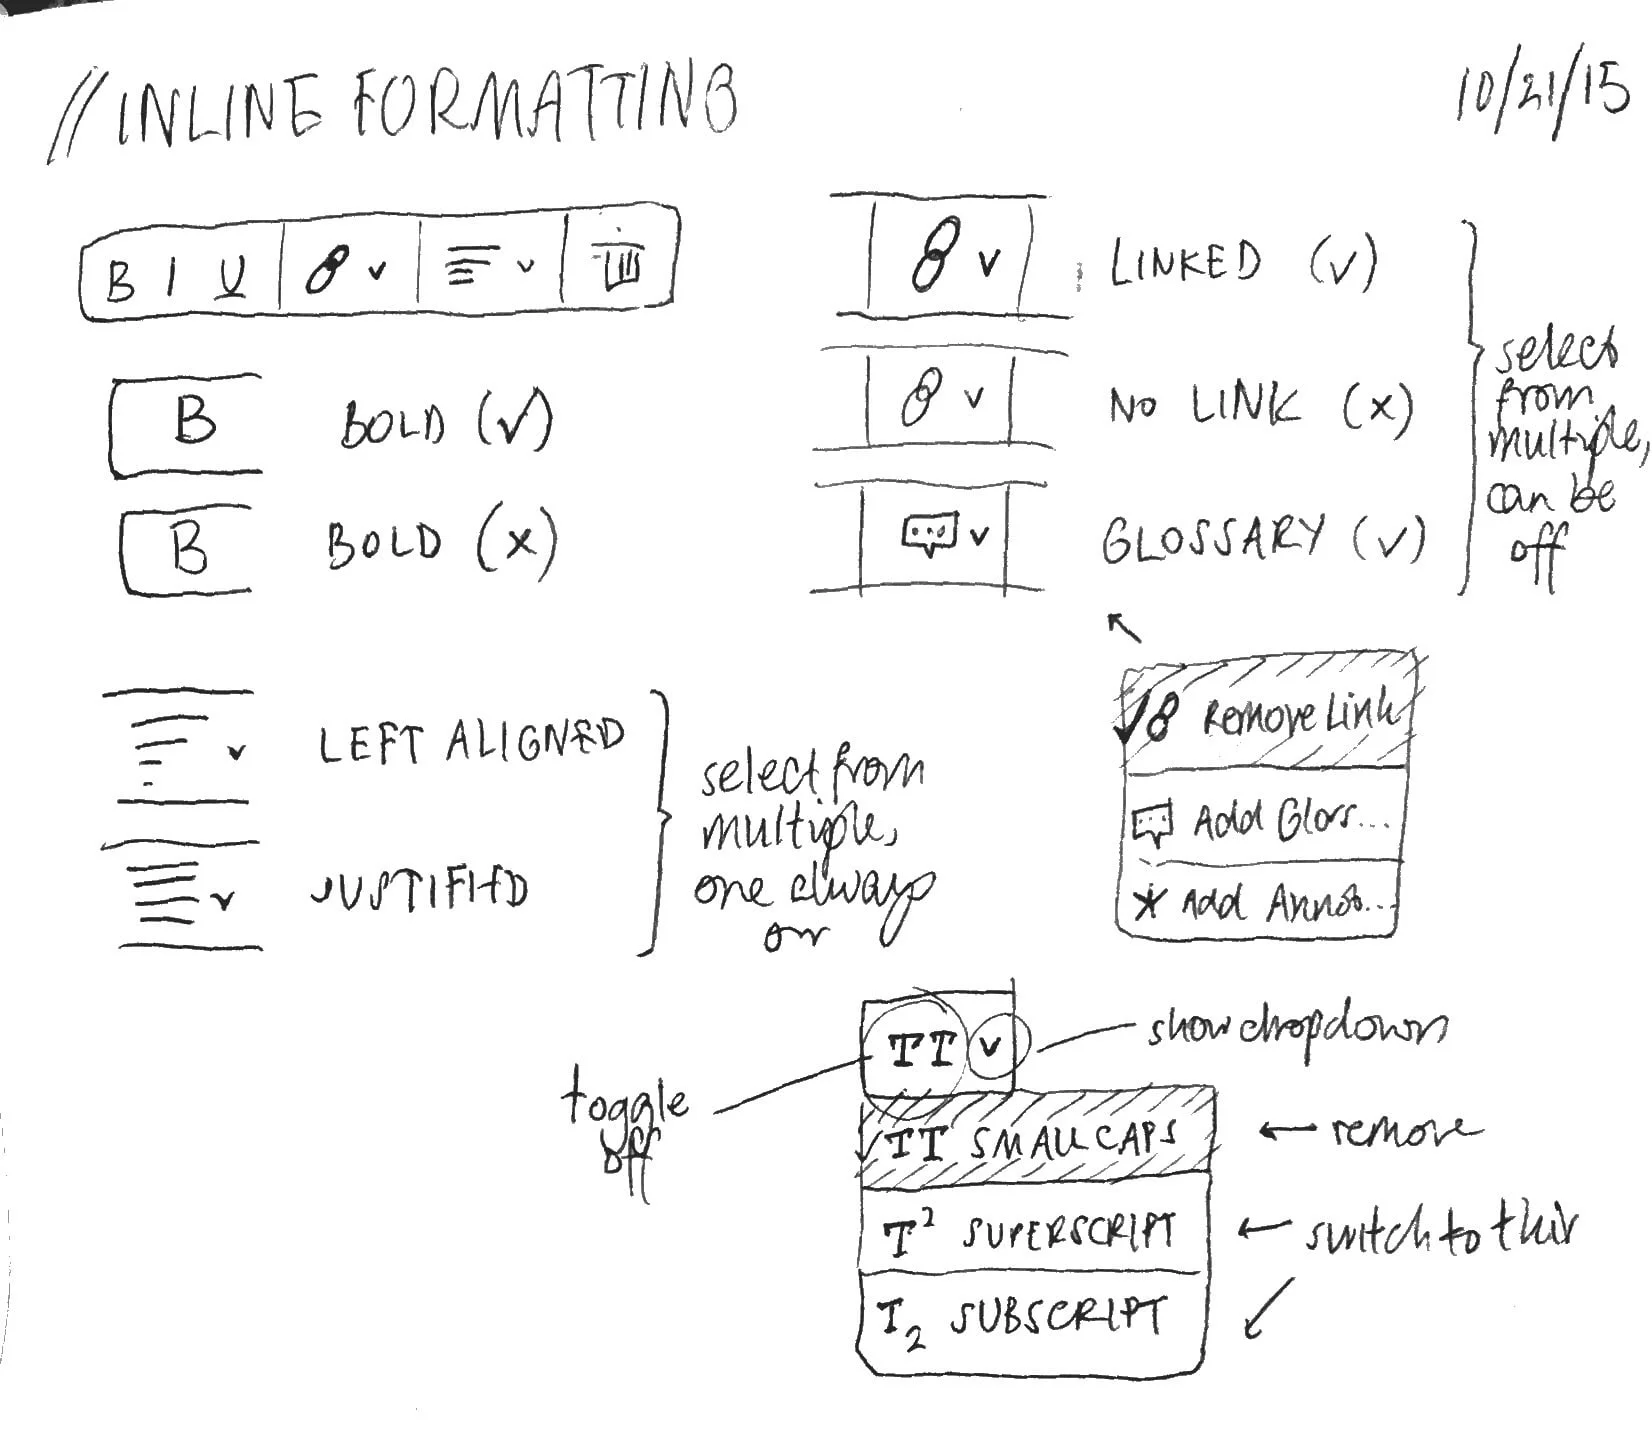 // INLINE FORMATTING
10/21/15
B I U
B BOLD (✓)
B BOLD (x)
LINKED (✓)
NO LINK (x)
GLOSSARY (✓)
select
from
multiple,
can be
off
LEFT ALIGNED
JUSTIFIED
select from
multiple,
one always
on
✓ Remove Link
Add Gloss...
* Add Annot...
TT
show dropdown
toggle
off
✓ TT SMALL CAPS
← remove
T² SUPERSCRIPT
← switch to this
T₂ SUBSCRIPT